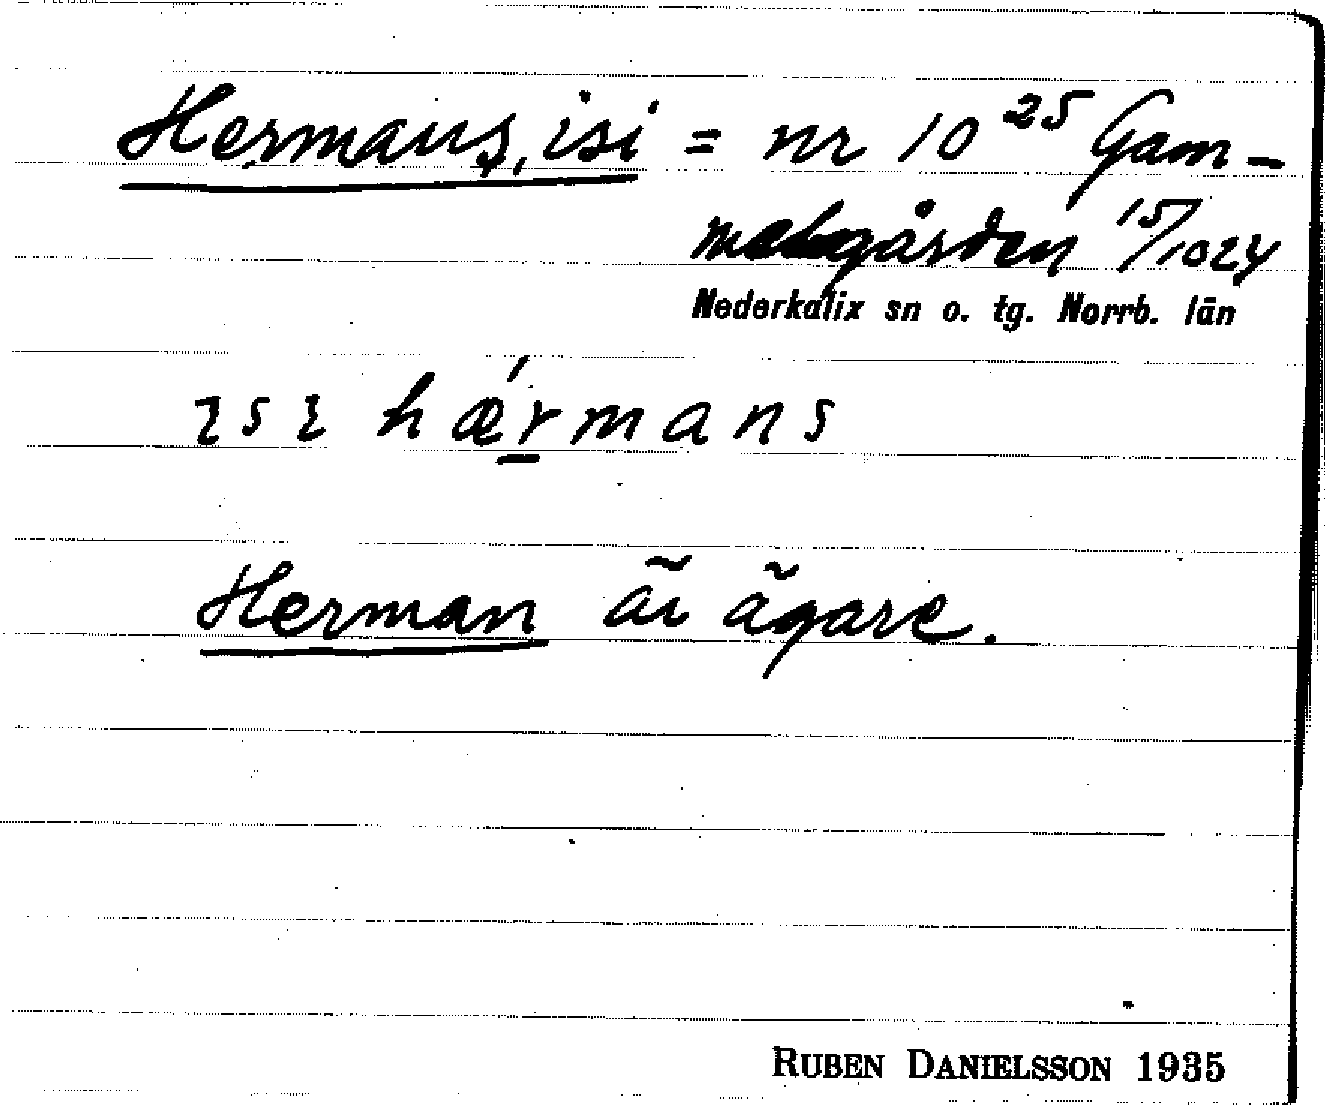 Hermans, isi = nr 10²⁵ Gam-
melgården 15/1024
Nederkalix sn o. tg. Norrb. län
ɩsɩ hǽrmans
Herman är ägare.
RUBEN DANIELSSON 1935